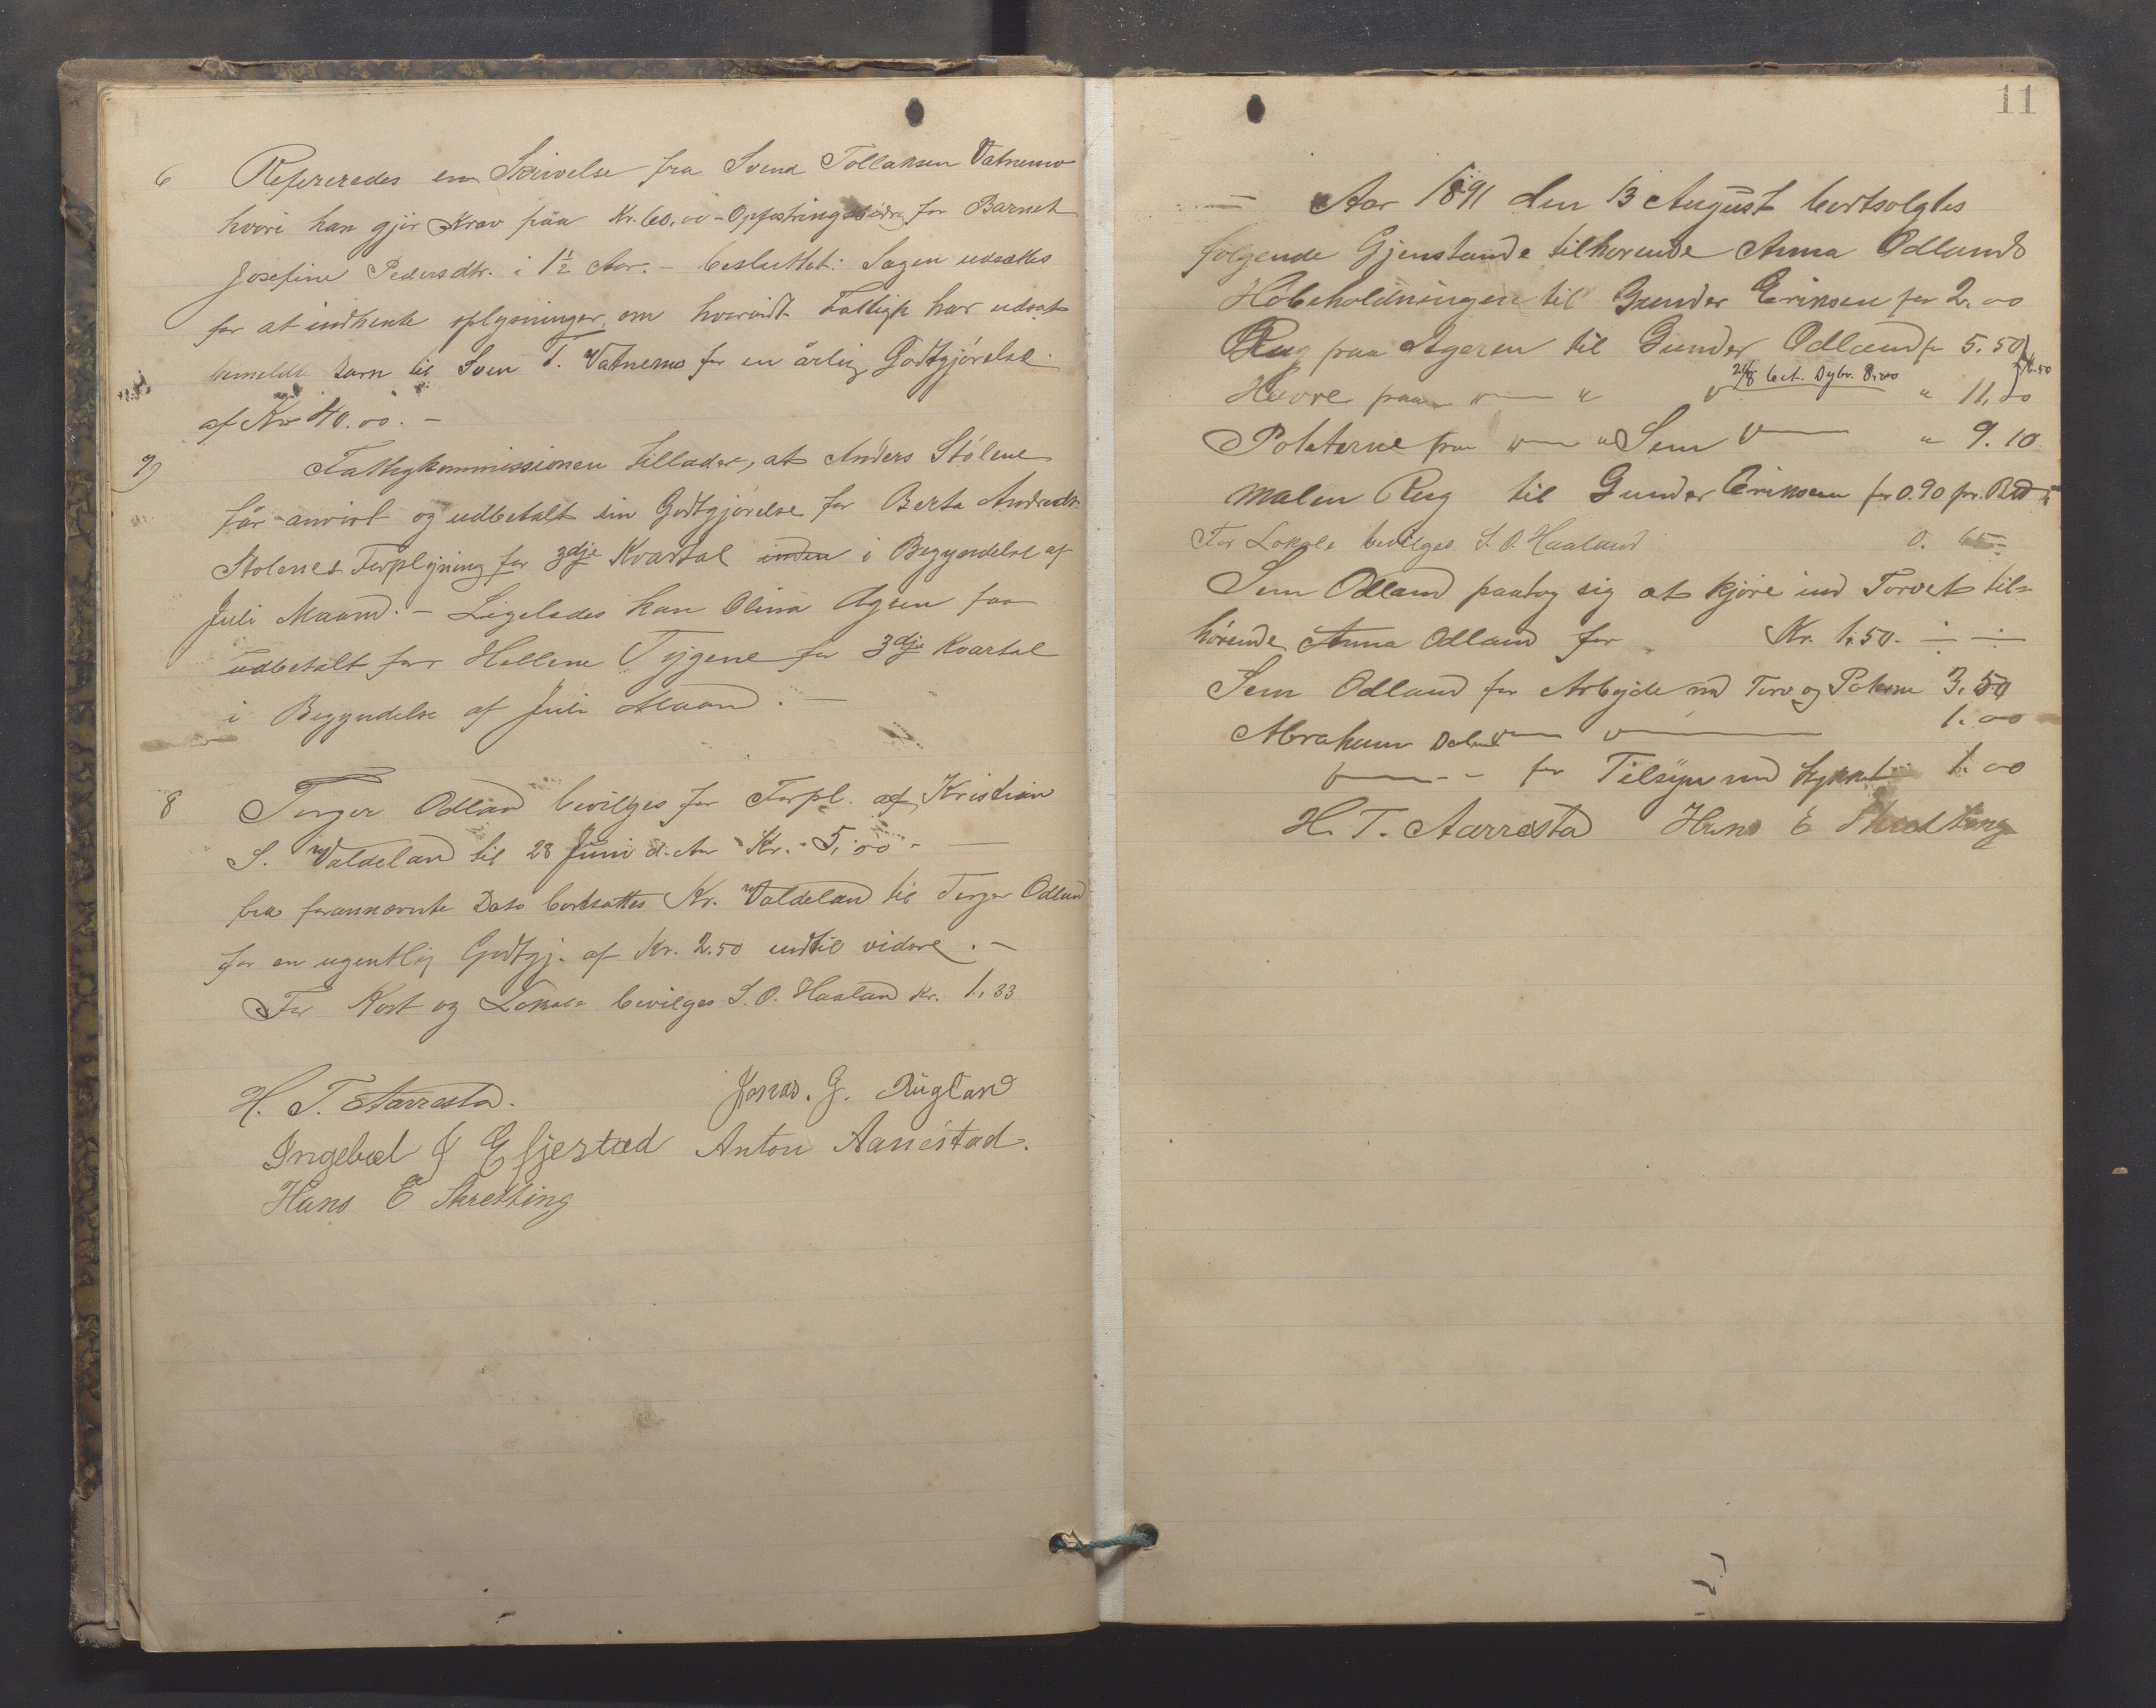 6 Refereredes en Skrivelse fra Svend Tollaksen Vatnemo
hvori han gjør Krav paa Kr. 60,00 - Opfostringsbidr. for Barnet
Josefine Pedersdtr. i 1½ Aar. - besluttet: Sagen udsættes
for at indhente oplysninger, om hvorvidt Fattigk. har udsat
bemeldte Barn til Sven T. Vatnemo for en årlig Godtgjörelse
af Kr 40.00. -
7) Fattigkommissionen tillader, at Anders Stölene
får anvist og udbetalt sin Godtgjörelse for Berta Andrdtr.
Stolenes Forplejning for 3dje Kvartal inden i Begyndelse af
Juli Maaned. - Ligeledes kan Olina Ågsen faa
udbetalt for Hellene Tygene for 3dje Kvartal
i Begyndelse af Juli Maaned. -
8 Torger Odland bevilges for Forpl. af Kristian
S. Valdeland til 23 Juni d. Aar Kr. 5,00 -
fra forannævnte Dato bortsattes Kr. Valdeland til Torger Odland
for en ugentlig Godtgj. af Kr. 2.50 indtil videre. -
For Kost og Lokale bevilges S. O. Haaland Kr. 1,33
H. T. Aarrestad. Jonas. G. Rugland
Ingebret J Efjestad Anton Aanestad.
Hans E Skretting
11
Aar 1891 den 13 August bortsolgtes
følgende Gjenstande tilhorende Anna Odland
Höbeholdningen til Gunder Eriksen for 2.00
Rug paa Ageren til Gunder Odland fr 5.50
26/8 bet. Dybv. 8.00
Havre paa " " 11,00
Poteterne paa " Sem " 9.10
malen Rug til Gunder Eriksen for 0.90 pr. Bd
For Lokale bevilges S. O. Haaland 0.
Sem Odland paatog sig at kjöre ind Torvet til-
hörende Anna Odland for Kr. 1.50. - -
Sem Odland for Arbejde md Torv og Poteterne 3.50
Abraham 1.00
for Tilsyn md 1.00
H. T. Aarrestad Hans E Skretting